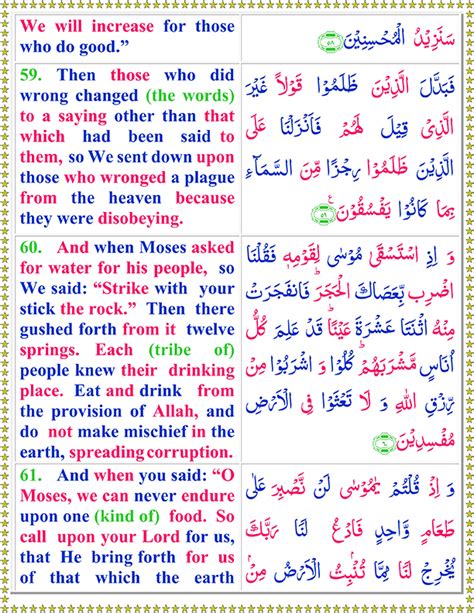 We will increase for those
who do good.”
سَنَزِيْدُ الْمُحْسِنِيْنَ ۝٥٨
59. Then those who did
wrong changed (the words)
to a saying other than that
which had been said to
them, so We sent down upon
those who wronged a plague
from the heaven because
they were disobeying.
فَبَدَّلَ الَّذِيْنَ ظَلَمُوْا قَوْلًا غَيْرَ
الَّذِىْ قِيْلَ لَهُمْ فَاَنْزَلْنَا عَلَى
الَّذِيْنَ ظَلَمُوْا رِجْزًا مِّنَ السَّمَآءِ
بِمَا كَانُوْا يَفْسُقُوْنَ ۝٥٩
60. And when Moses asked
for water for his people, so
We said: “Strike with your
stick the rock.” Then there
gushed forth from it twelve
springs. Each (tribe of)
people knew their drinking
place. Eat and drink from
the provision of Allah, and
do not make mischief in the
earth, spreading corruption.
وَ اِذِ اسْتَسْقٰى مُوْسٰى لِقَوْمِهٖ فَقُلْنَا
اضْرِب بِّعَصَاكَ الْحَجَرَ ؕ فَانْفَجَرَتْ
مِنْهُ اثْنَتَا عَشْرَةَ عَيْنًا ؕ قَدْ عَلِمَ كُلُّ
اُنَاسٍ مَّشْرَبَهُمْ ؕ كُلُوْا وَ اشْرَبُوْا مِنْ
رِّزْقِ اللّٰهِ وَ لَا تَعْثَوْا فِى الْاَرْضِ
مُفْسِدِيْنَ ۝٦٠
61. And when you said: “O
Moses, we can never endure
upon one (kind of) food. So
call upon your Lord for us,
that He bring forth for us
of that which the earth
وَ اِذْ قُلْتُمْ يٰمُوْسٰى لَنْ نَّصْبِرَ عَلٰى
طَعَامٍ وَّاحِدٍ فَادْعُ لَنَا رَبَّكَ
يُخْرِجْ لَنَا مِمَّا تُنْۢبِتُ الْاَرْضُ